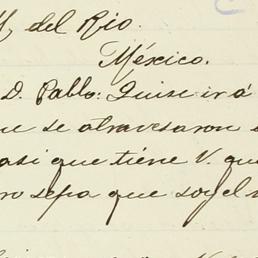 M. del Rio.
México.
D. Pablo: Quise ir á
se atravesaron
asi que tiene V. que
sepa que soy el